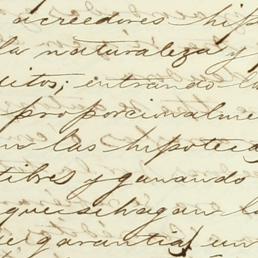 acreedores hip
la naturaleza y
uitos; entrando la
proporcionalme
en las hipoteca
libres y ganando
que se hagan la
de garantias un